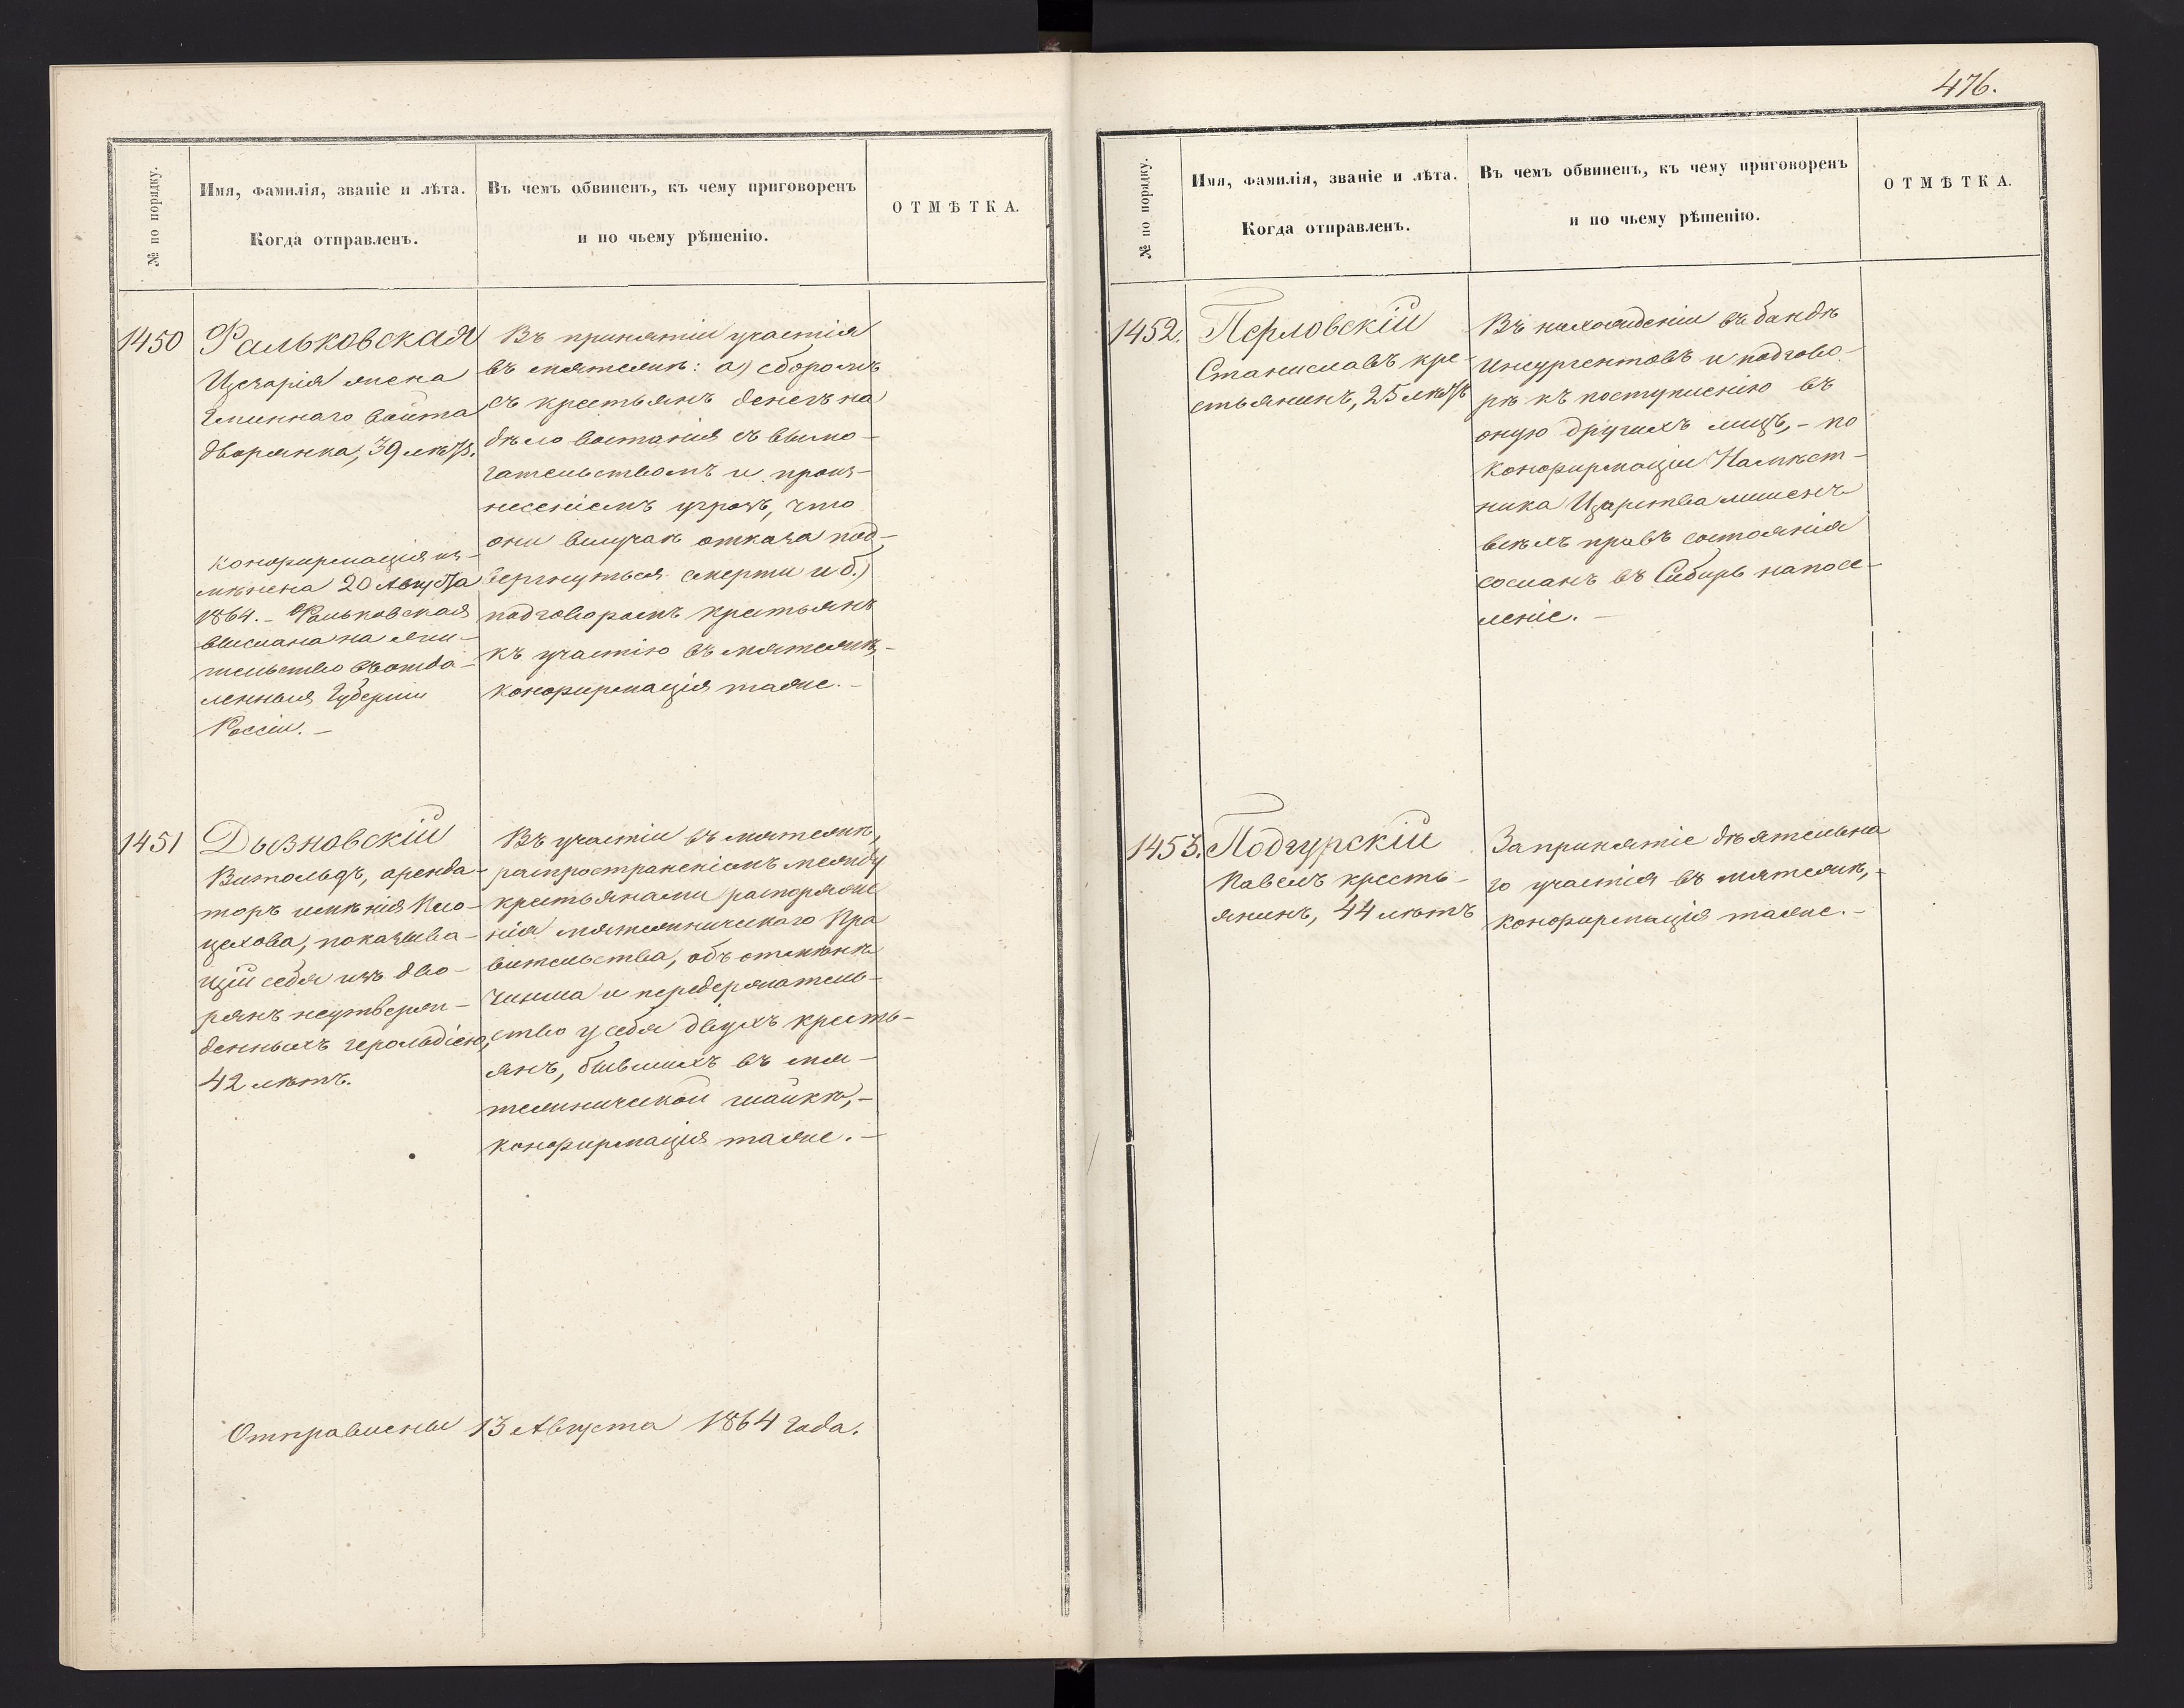 476.
№ по порядку.
Имя, фамилія, званіе и лѣта.
Когда отправленъ.
Въ чемъ обвиненъ, къ чему приговоренъ
и по чьему рѣшенію.
ОТМѢТКА.
1450
Фальковская
Цезарія жена
Гминнаго Войта
дворянка, 39 лѣтъ.
Конфирмація из-
мѣнена 20 Августа
1864. – Фальковская
выслана на жи-
тельство въ отда-
ленныя Губерніи
Россіи. –
Въ принятіи участія
въ мятежѣ: а) сборомъ
съ крестьянъ денегъ на
дѣло востанія съ вымо-
гательствомъ и произ-
несеніемъ угрозъ, что
они вслучаѣ отказа под-
вергнуться смерти и б.)
подговоромъ крестьянъ
къ участію въ мятежѣ, –
конфирмація таже. –
1451
Дызновскій
Витольдъ, аренда-
торъ имѣнія Кло-
цехова, показыва-
щій себя изъ дво-
рянъ неутверж-
денныхъ герольдіею,
42 лѣтъ.
Въ участіи въ мятежѣ,
распространеніемъ между
крестьянами распоряже
нія мятежническаго Пра
вительства, объ отмѣнѣ
Чинша и передержатель-
ство у себя двухъ кресть-
янъ, бывшихъ въ мя-
тежнической шайкѣ, –
конфирмація таже. –
Отправлены 13 Августа 1864 года.
№ по порядку.
Имя, фамилія, званіе и лѣта.
Когда отправленъ.
Въ чемъ обвиненъ, къ чему приговоренъ
и по чьему рѣшенію.
ОТМѢТКА.
1452.
Перловскій
Станиславъ кре-
стьянинъ, 25 лѣтъ
Въ нахожденіи въ бандѣ
инсургентовъ и подгово-
рѣ къ поступленію въ
оную другихъ лицъ, – по
конфирмаціи Намѣст-
ника Царства лишенъ
всѣхъ правъ состоянія
сосланъ въ Сибирь на посе-
леніе. –
1453.
Подгурскій
Павелъ кресть-
янинъ, 44 лѣтъ
За принятіе дѣятельна
го участія въ мятежѣ, –
конфирмація таже. –